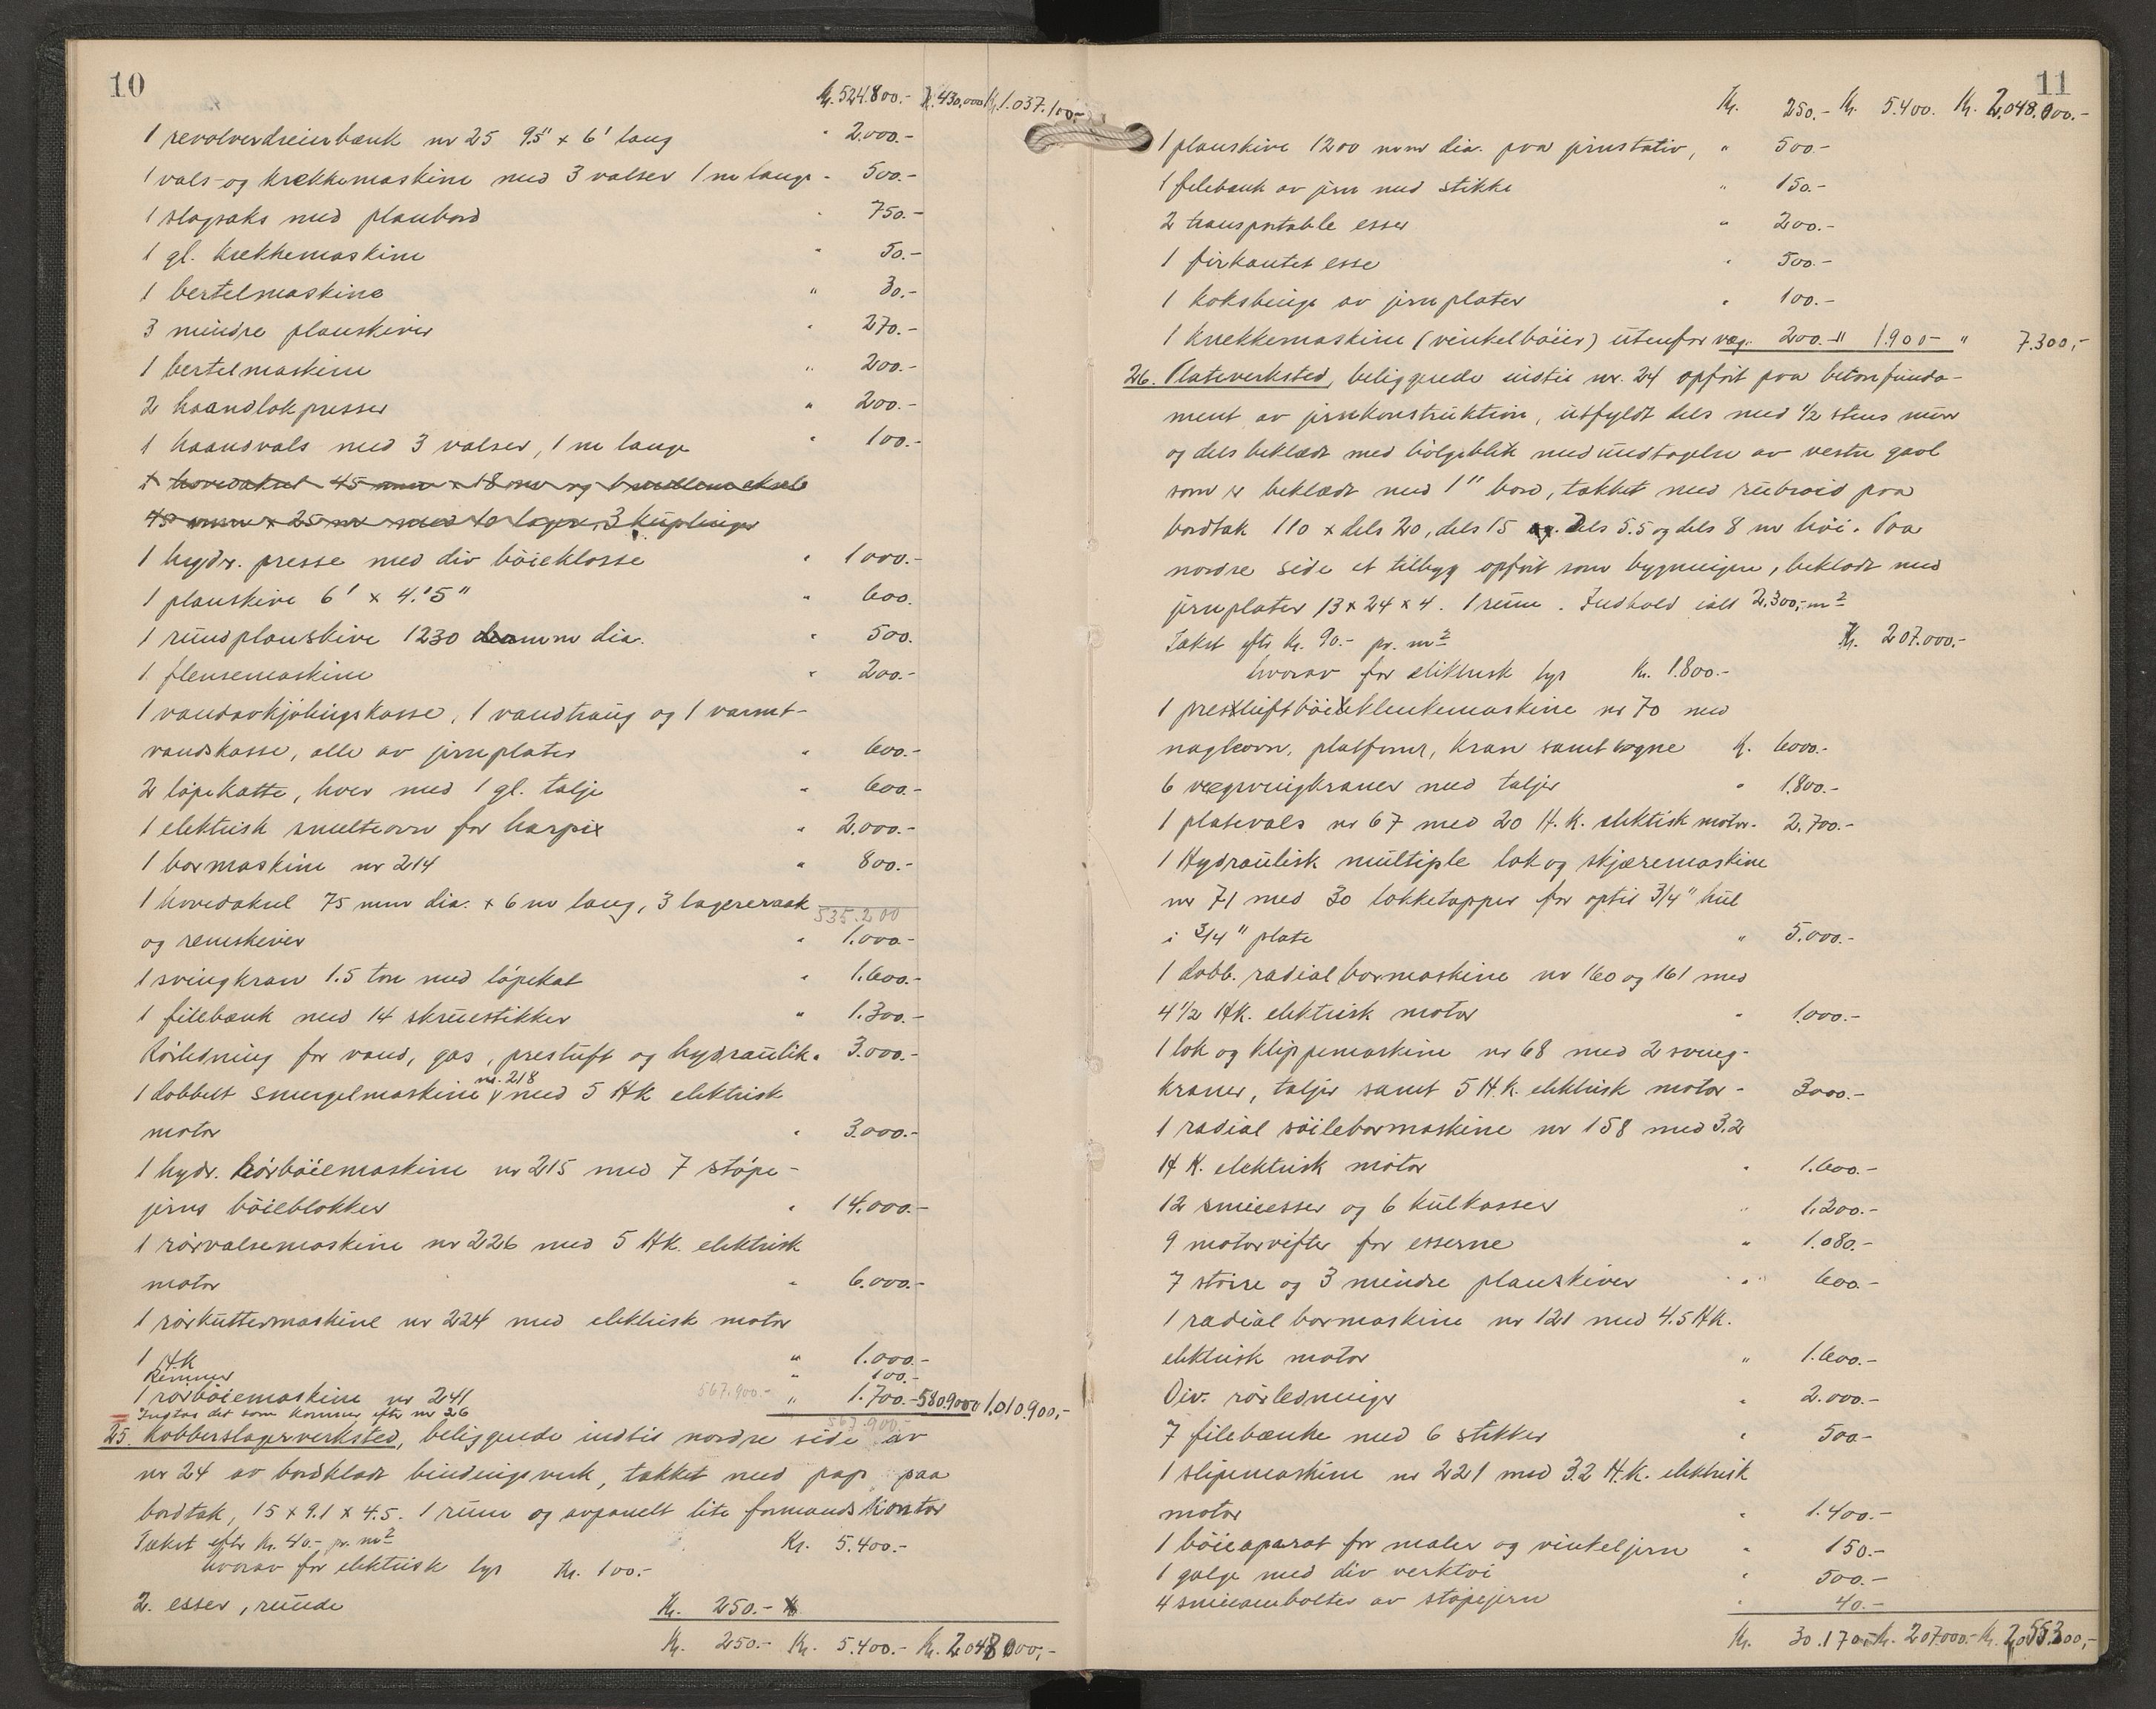 10
Kr. 524.800.- Kr. 430,000 Kr. 1.037.100,-
1 revolverdreierbænk nr 25 9.5" x 6' lang " 2.000.-
1 vals- og knekkemaskine med 3 valser 1 m lange - 500.-
1 slagsaks med planbord " 750.-
1 gl. knekkemaskine " 50.-
1 bertelmaskine " 30.-
3 mindre planskiver " 270.-
1 bertelmaskine " 200.-
2 haandlokpresser " 200.-
1 haandvals med 3 valser, 1 m lange " 100.-
1 hovedaksel 45 mm x 18 m og 1 mellemaksel
45 mm x 25 m med 10 lagre, 3 kuplinger
1 hydr. presse med div böieklosse " 1000.-
1 planskive 6' x 4.'5" " 600.
1 rundplanskive 1230 mm dia. " 500.
1 flensemaskine " 200.-
1 vandavkjölingskasse, 1 vandtraug og 1 varmt-
vandskasse, alle av jernplater " 600.-
2 löpekatte, hver med 1 gl. talje " 600.-
1 elektrisk smelteovn for harpix " 2.000.-
1 bormaskine nr 214 " 800.-
1 hovedaksel 75 mm dia. x 6 m lang, 3 lagereraak
535.200
og remskiver " 1.000.-
1 svingkran 1.5 ton med löpekat " 1.600.-
1 filebænk med 14 skruestikker " 1.300.-
Rörledning for vand, gas, presluft og hydraulik " 3.000.-
1 dobbelt smergelmaskine nr. 218 med 5 HK elektrisk
motor " 3.000.-
1 hydr. rörböiemaskine nr 215 med 7 stöpe-
jerns böieblokker " 14.000.-
1 rörvalsemaskine nr 226 med 5 HK. elektrisk
motor " 6.000.-
1 rörkuttermaskine nr 224 med elektrisk motor
1 H.K " 1.000.-
Remmer " 100.-
1 rörböiemaskine nr 241 567.900.- " 1.700.- 580.900 1.010.900,-
Indtas det som kommer efter nr 26 567.900.-
25. Kobberslagerverksted, beliggende indtil nordre side av
nr 24 av bordklædt bindingsverk, tækket med pap paa
bordtak, 15 x 9.1 x 4.5. 1 rum og avpanelt lite formands kontor
Takst efter Kr. 40.- pr. m2 Kr. 5.400.-
hvorav for elektrisk lys Kr. 100.-
2 esser, runde Kr. 250.- Kr
Kr. 250.- Kr. 5.400.- Kr. 2.048.000,-
11
Kr. 250.- Kr. 5.400. Kr. 2.048.000.-
1 planskive 1200 mm dia. paa jernstativ, " 500.-
1 filebænk av jern med stikke " 150.-
2 transportable esser " 200.-
1 firkantet esse " 500.-
1 koksbinge av jernplater " 100.-
1 knekkemaskine (vinkelböier) utenfor væg. 200.- " 1.900- " 7.300,-
26. Plateverksted, beliggende indtil nr. 24 opfört paa betonfunda-
ment av jernkonstruktion, utfyldt dels med 1/2 stens mur
og dels beklædt med bölgeblik med undtagelse av vestre gavl
som er beklædt med 1" bord, tækket med ruberoid paa
bordtak 110 x dels 20, dels 15 og dels 5.5 og dels 8 m höi. Paa
nordre side et tilbygg opfört som bygningen, beklædt med
jernplater 13 x 24 x 4. 1 rum. Indhold ialt 2.300,- m2
Takst efter Kr. 90.- pr. m2 Kr. 207.000.-
hvorav for elektrisk lys Kr. 1.800.-
1 presluftböileklinkemaskine nr 70 med
nagleovn, platform, kran samt vogne Kr. 6000.-
6 vægsvingkraner med taljer " 1.800.-
1 platevals nr 67 med 20 H.K. elektrisk motor - 2.700.-
1 Hydraulisk multiple lok og skjæremaskine
nr 71 med 30 lokketapper for optil 3/4" hul
i 3/4" plate " 5.000.-
1 dobb. radial bormaskine nr 160 og 161 med
4 1/2 HK. elektrisk motor " 1.000.-
1 lok og klippemaskine nr 68 med 2 sving-
kraner, taljer samt 5 H.K. elektrisk motor - 3000.-
1 radial söilebormaskine nr 158 med 3.2
H K. elektrisk motor " 1.600.-
12 smieesser og 6 kulkasser " 1.200.-
9 motorvifter for esserne " 1.080.-
7 större og 3 mindre planskiver " 600.-
1 radial bormaskine nr 121 med 4.5 HK.
elektrisk motor " 1.600.-
Div. rörledninger " 2.000.-
7 filebænke med 6 stikker " 500-
1 slipemaskine nr 221 med 3.2 H.K. elektrisk
motor " 1.400.-
1 böieaparat for maler og vinkeljern " 150.-
1 galge med div verktöi " 500.-
4 smieambolter av stöpejern " 40.-
Kr. 30.170.- Kr. 207.000.- Kr. 2.055.300,-